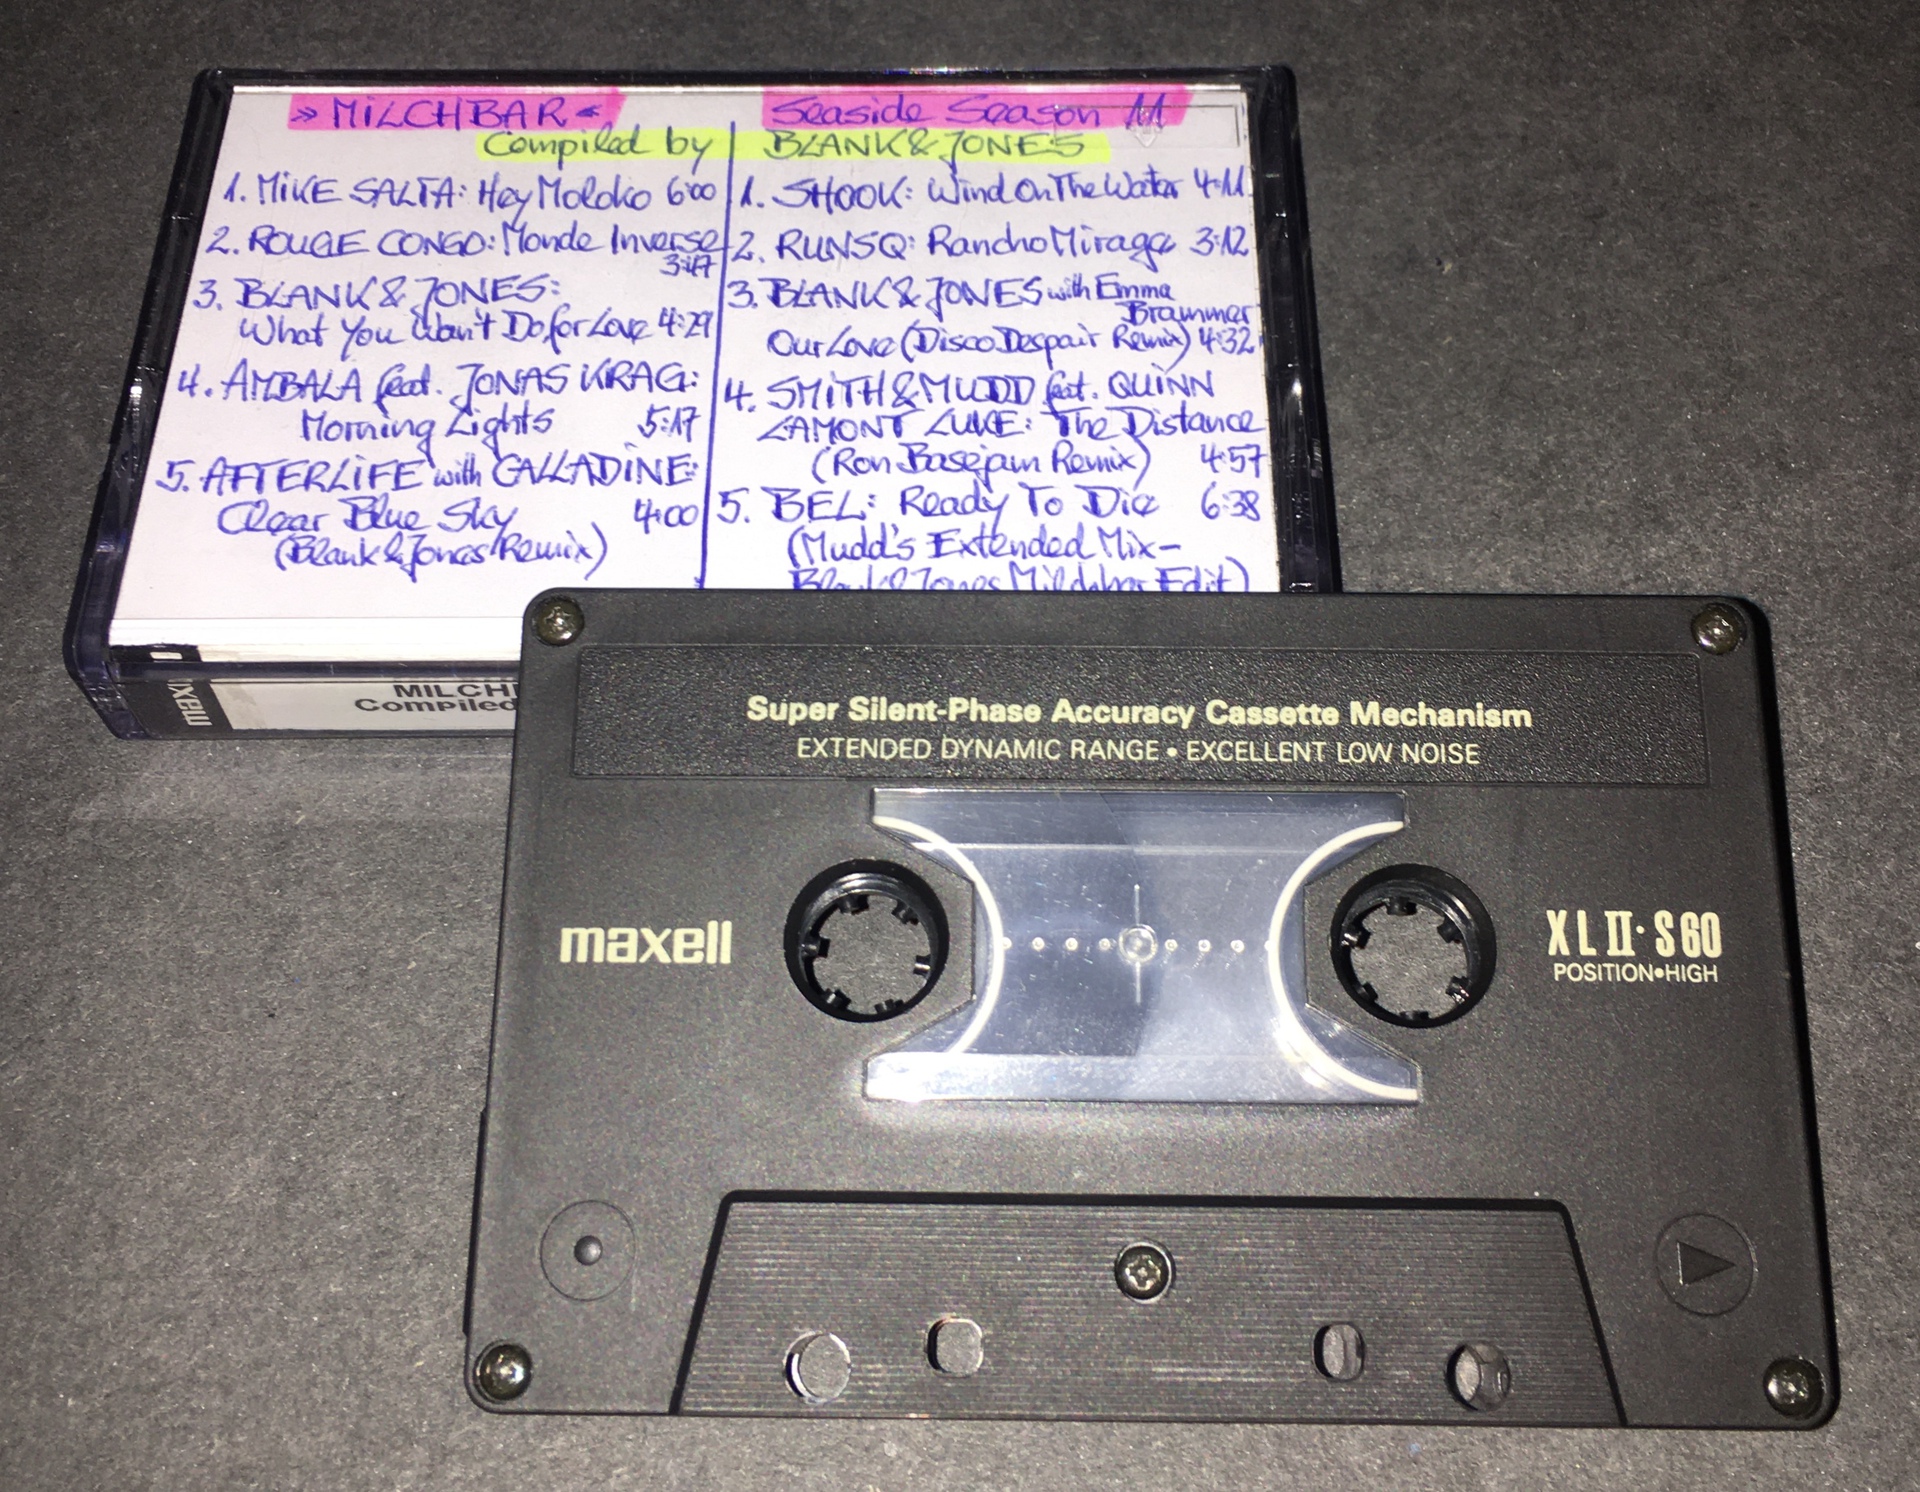 »MiLCHBAR«
Seaside Season 11
Compiled by BLANK&JONES
1. MiKE SALTA: Hey Moloko 6:00
2. ROUGE CONGO: Monde Inverse
3:47
3. BLANK & JONES:
What You Wan't Do for Love 4:29
4. AMBALA feat. JONAS KRAG:
Morning Lights 5:17
5. AFTERLiFE with GALLADiNE:
Clear Blue Sky 4:00
(Blank & Jones Remix)
1. SHOOK: Wind On The Water 4:11
2. RUNSQ: Rancho Mirage 3:12
3. BLANK & JONES with Emma
Brammer
Our Love (Disco Despair Remix) 4:32
4. SMiTH & MUDD feat. QUiNN
LAMONT LUKE: The Distance
(Ron Basejam Remix) 4:57
5. BEL: Ready To Die 6:38
(Mudd's Extended Mix-
Blank & Jones Milchbar Edit)
maxell
MILCH
Compiled
Super Silent-Phase Accuracy Cassette Mechanism
EXTENDED DYNAMIC RANGE • EXCELLENT LOW NOISE
maxell
XL II·S 60
POSITION•HIGH